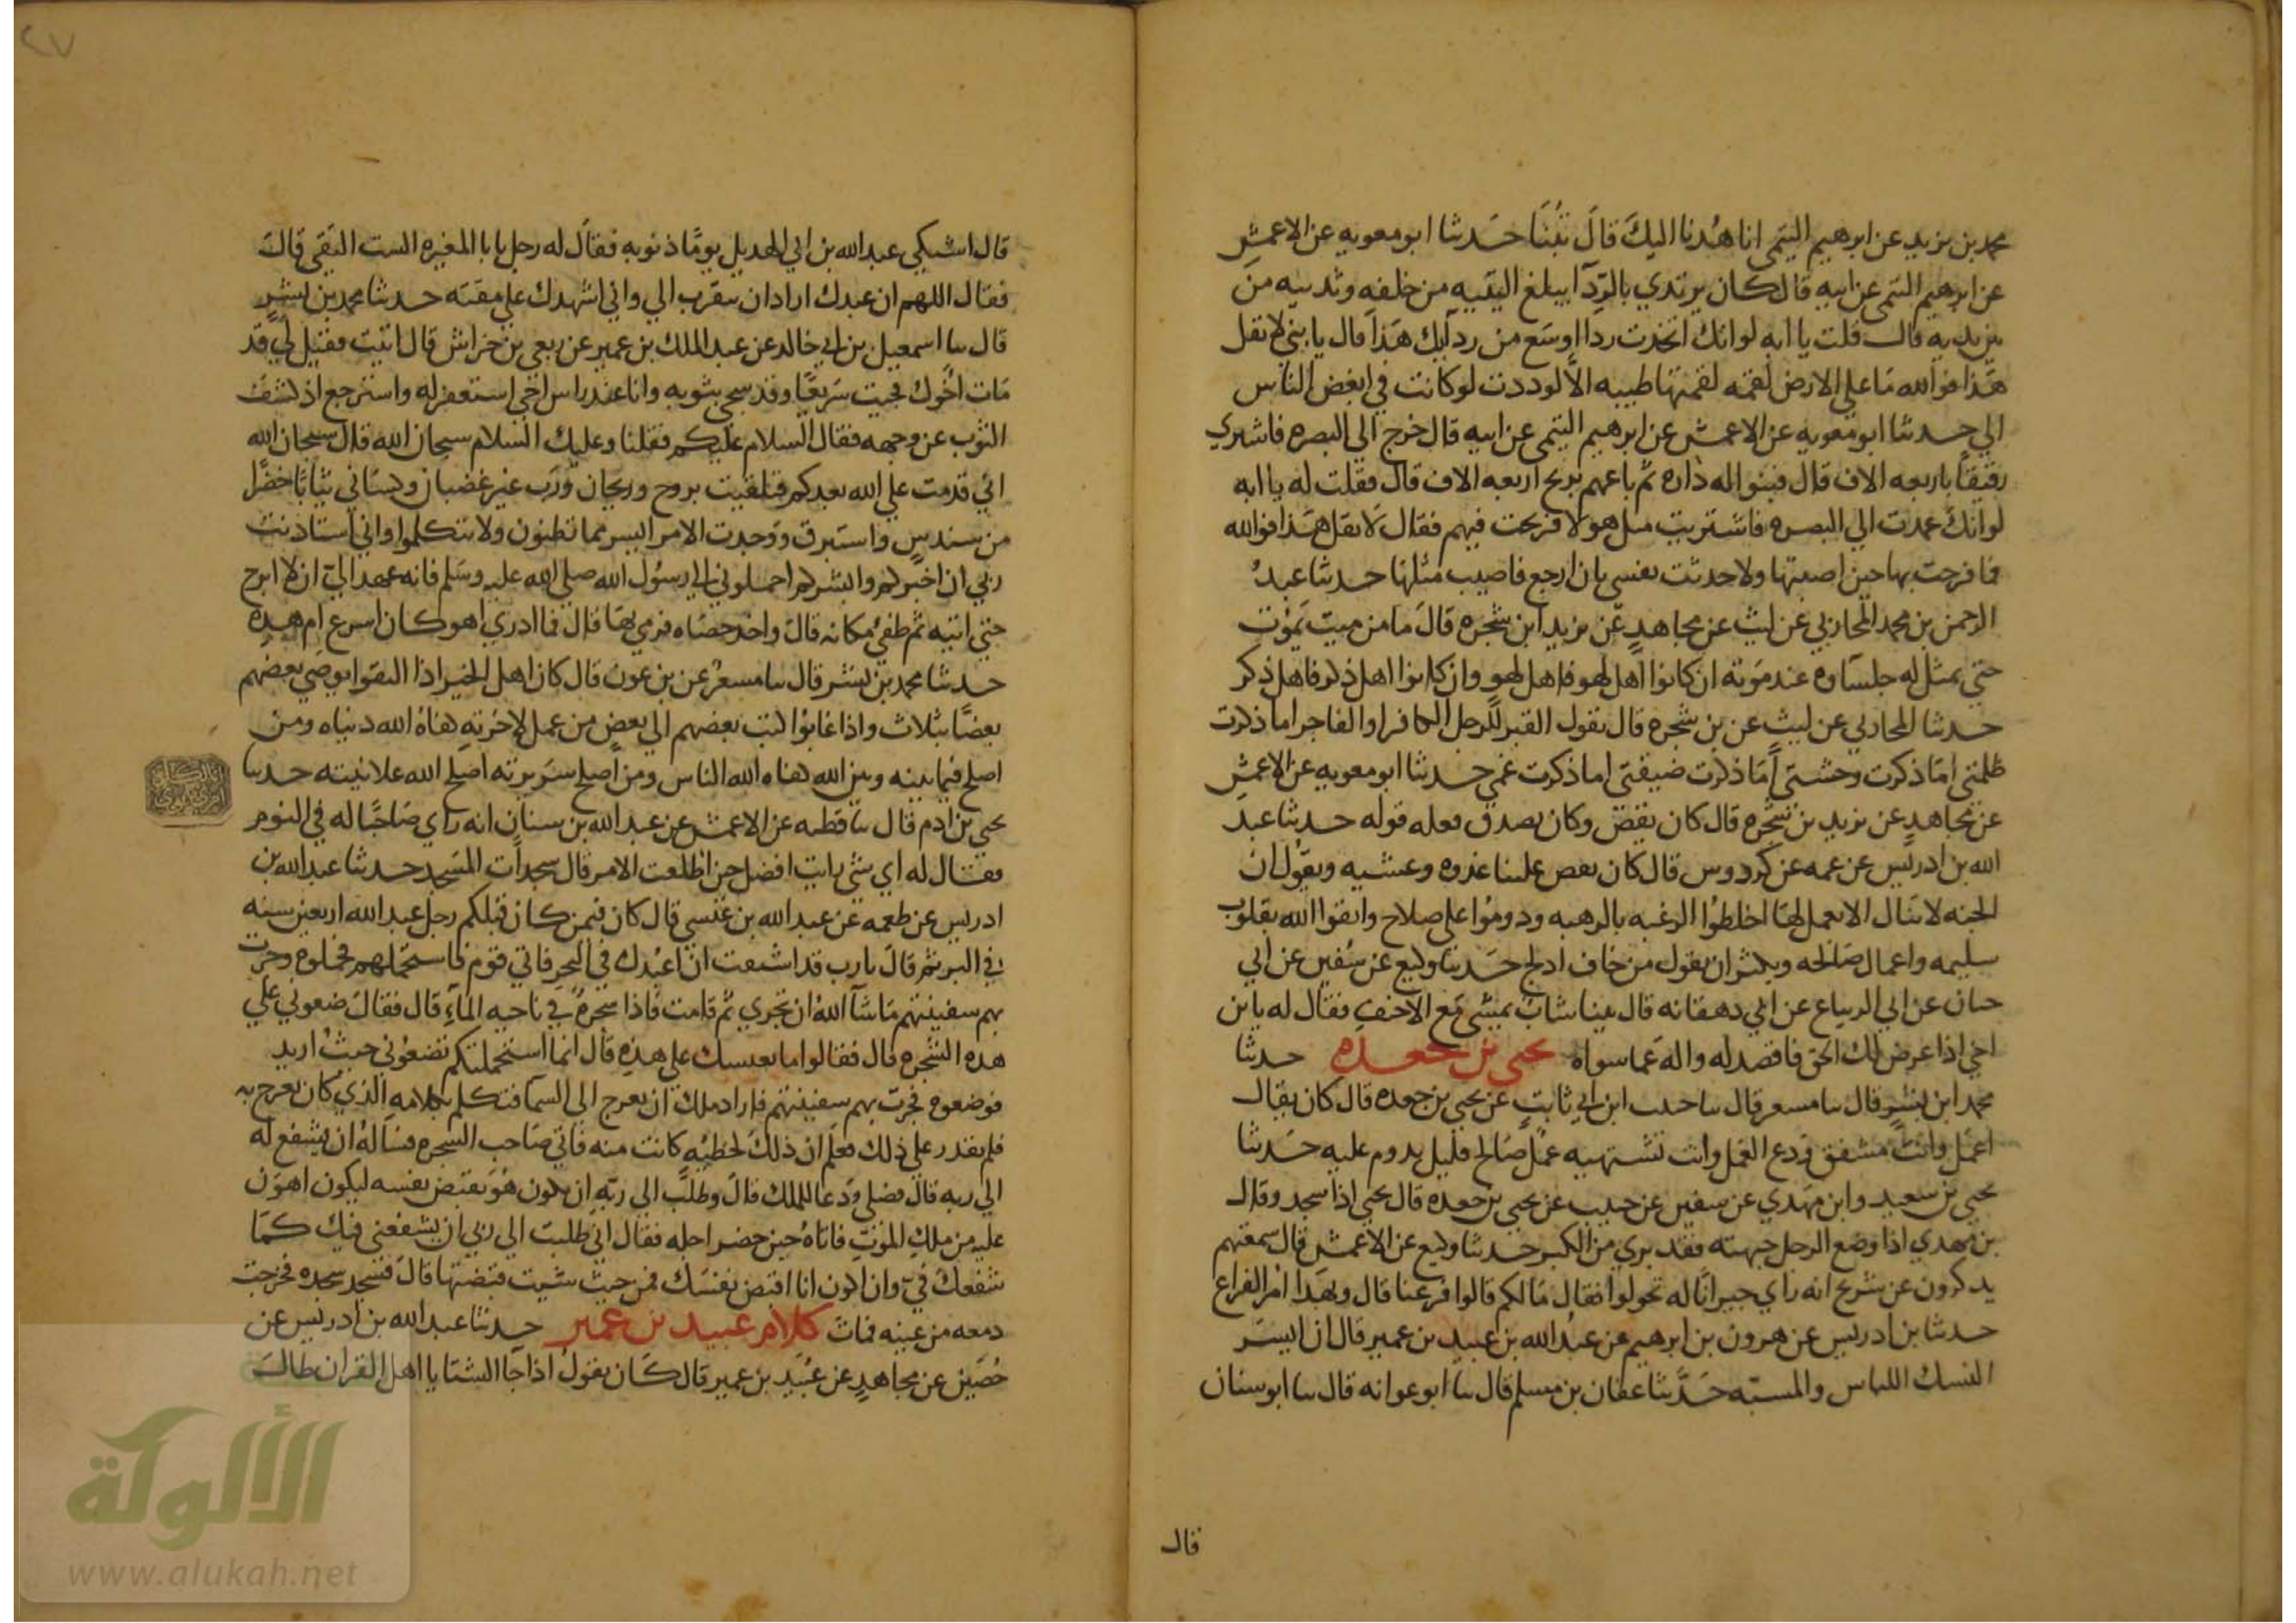 محمد بن يزيد عن ابرهيم التيمى انا هدنا اليك قال تبنا حدثنا ابو معويه عن الاعمش
عن ابرهيم التيمى عن ابيه قال كان يرتدي بالردآ يبلغ اليتيه من خلفه وثدييه من
بين يديه قال قلت يا ابه لو انك اتخذت ردا اوسع من ردآيك هذا قال يا بني لا تقل
هذا فوالله ما على الارض لقمه لقمتها طيبه الا لوددت لو كانت في ابغض الناس
الي حدثنا ابو معويه عن الاعمش عن ابرهيم التيمى عن ابيه قال خرج الي البصره فاشترى
رقيقا باربعه الاف قال فبنوا له داره ثم باعهم بربح اربعه الاف قال فقلت له يا ابه
لو انك عمدت الي البصره فاشتريت مثل هولا فربحت فيهم فقال لا تقل هذا فوالله
ما فرحت بها حين اصبتها ولا حدثت نفسي بان ارجع فاصيب مثلها حدثنا عبد
الرحمن بن محمد المحاربي عن ليث عن مجاهد عن يزيد ابن شجره قال ما من ميت يموت
حتي يمثل له جلساوه عند موته ان كانوا اهل لهو فاهل لهو وان كانوا اهل ذكر فاهل ذكر
حدثنا المحاربي عن ليث عن بن شجره قال يقول القبر للرجل الكافر او الفاجر اما ذكرت
ظلمتي اما ذكرت وحشتي اما ذكرت ضيقتي اما ذكرت غمي حدثنا ابو معويه عن الاعمش
عن مجاهد عن يزيد بن شجره قال كان يقص وكان يصدق فعله قوله حدثنا عبد
الله بن ادريس عن عمه عن كردوس قال كان يقص علينا غدوه وعشيه ويقول ان
الجنه لا تنال الا بعمل لها اخلطوا الرغبه بالرهبه ودوموا على صلاح واتقوا الله بقلوب
سليمه واعمال صالحه ويكثر ان يقول من خاف ادلج حدثنا وكيع عن سفين عن ابي
حيان عن ابي الزنباع عن ابي دهقانه قال بينا شاب يمشي مع الاحنف فقال له يا بن
اخي اذا عرض لك الحق فاقصد له واله عما سواه يحيى بن جعده حدثنا
محمد ابن بشر قال ثنا مسعر قال ثنا حبيب ابن ابي ثابت عن يحيى بن جعده قال كان يقال
اعمل وانت مشفق ودع العمل وانت تشتهيه عمل صالح قليل يدوم عليه حدثنا
يحيى بن سعيد وابن مهدي عن سفين عن حبيب عن يحيى بن جعده قال يحيى اذا سجد وقال
بن مهدي اذا وضع الرجل جبهته فقد بري من الكبر حدثنا وكيع عن الاعمش قال سمعتهم
يذكرون عن شريح انه راي جيرانا له تحولوا فقال ما لكم قالوا فرغنا قال وبهذا امر الفراغ
حدثنا بن ادريس عن هرون بن ابرهيم عن عبد الله بن عبيد بن عمير قال ان ايسر
النسك اللباس والمسيه حدثنا عفان بن مسلم قال ثنا ابو عوانه قال ثنا ابو سنان
قال
٢٧
قال اشتكى عبد الله بن ابي الهذيل يوما ذنوبه فقال له رجل يا با المغيره الست التقي قال
فقال اللهم ان عبدك اراد ان يتقرب الي واني اشهدك على مقته حدثنا محمد بن بشر
قال ثنا اسمعيل بن ابي خالد عن عبد الملك بن عمير عن ربعي بن خراش قال اتيت فقيل لي قد
مات اخوك فجيت سريعا وقد سجي بثوبه وانا عند راس اخي استغفر له واسترجع اذ كشف
الثوب عن وجهه فقال السلام عليكم فقلنا وعليك السلام سبحان الله قال سبحان الله
اني قدمت على الله بعدكم فتلقيت بروح وريحان ورب غير غضبان وكساني ثيابا خضرا
من سندس واستبرق ووجدت الامر ايسر مما تظنون ولا تتكلموا واني استاذنت
ربي ان اخبركم وابشركم احملوني الي رسول الله صلى الله عليه وسلم فانه عهد الي ان لا ابرح
حتي اتيه ثم طفئ مكانه قال واخذ حصاه فرمى بها قال فما ادري اهو كان اسرع ام هذه
حدثنا محمد بن بشر قال ثنا مسعر عن بن عون قال كان اهل الخير اذا التقوا يوصي بعضهم
بعضا بثلاث واذا غابوا كتب بعضهم الي بعض من عمل لاخرته كفاه الله دنياه ومن
اصلح فيما بينه وبين الله كفاه الله الناس ومن اصلح سريرته اصلح الله علانيته حدثنا
يحيى بن ادم قال ثنا قطبه عن الاعمش عن عبد الله بن سنان انه راي صاحبا له في النوم
فقال له اي شي رايت افضل حين اطلعت الامر قال سجدات المسجد حدثنا عبد الله بن
ادريس عن طعمه عن عبد الله بن عيسى قال كان فيمن كان قبلكم رجل عبد الله اربعين سنه
في البر ثم قال يا رب قد اشتقت ان اعبدك في البحر فاتي قوم فاستحملهم فحملوه وجرت
بهم سفينتهم ما شآ الله ان تجري ثم قامت فاذا شجره في ناحيه المآء قال فقال ضعوني على
هذه الشجره قال فقالوا ما يعيسك على هذه قال انما استحملتكم تضعوني حيث اريد
فوضعوه فجرت بهم سفينتهم فاراد ملك ان يعرج الى السما فتكلم بكلامه الذي كان يعرج به
فلم يقدر على ذلك فعلم ان ذلك لخطيه كانت منه فاتي صاحب الشجره فساله ان يشفع له
الي ربه قال فصلى ودعا للملك قال وطلب الي ربه ان يكون هو يقبض نفسه ليكون اهون
عليه من ملك الموت فاتاه حين حضر اجله فقال اني طلبت الي ربي ان يشفعني فيك كما
شفعك في وان اكون انا اقبض نفسك فمن حيث شيت قبضتها قال فسجد سجده فخرجت
دمعه من عينه فمات كلام عبيد بن عمير حدثنا عبد الله بن ادريس عن
حصين عن مجاهد عن عبيد بن عمير قال كان يقول اذا جا الشتا يا اهل القران طال
الألوكة
www.alukah.net